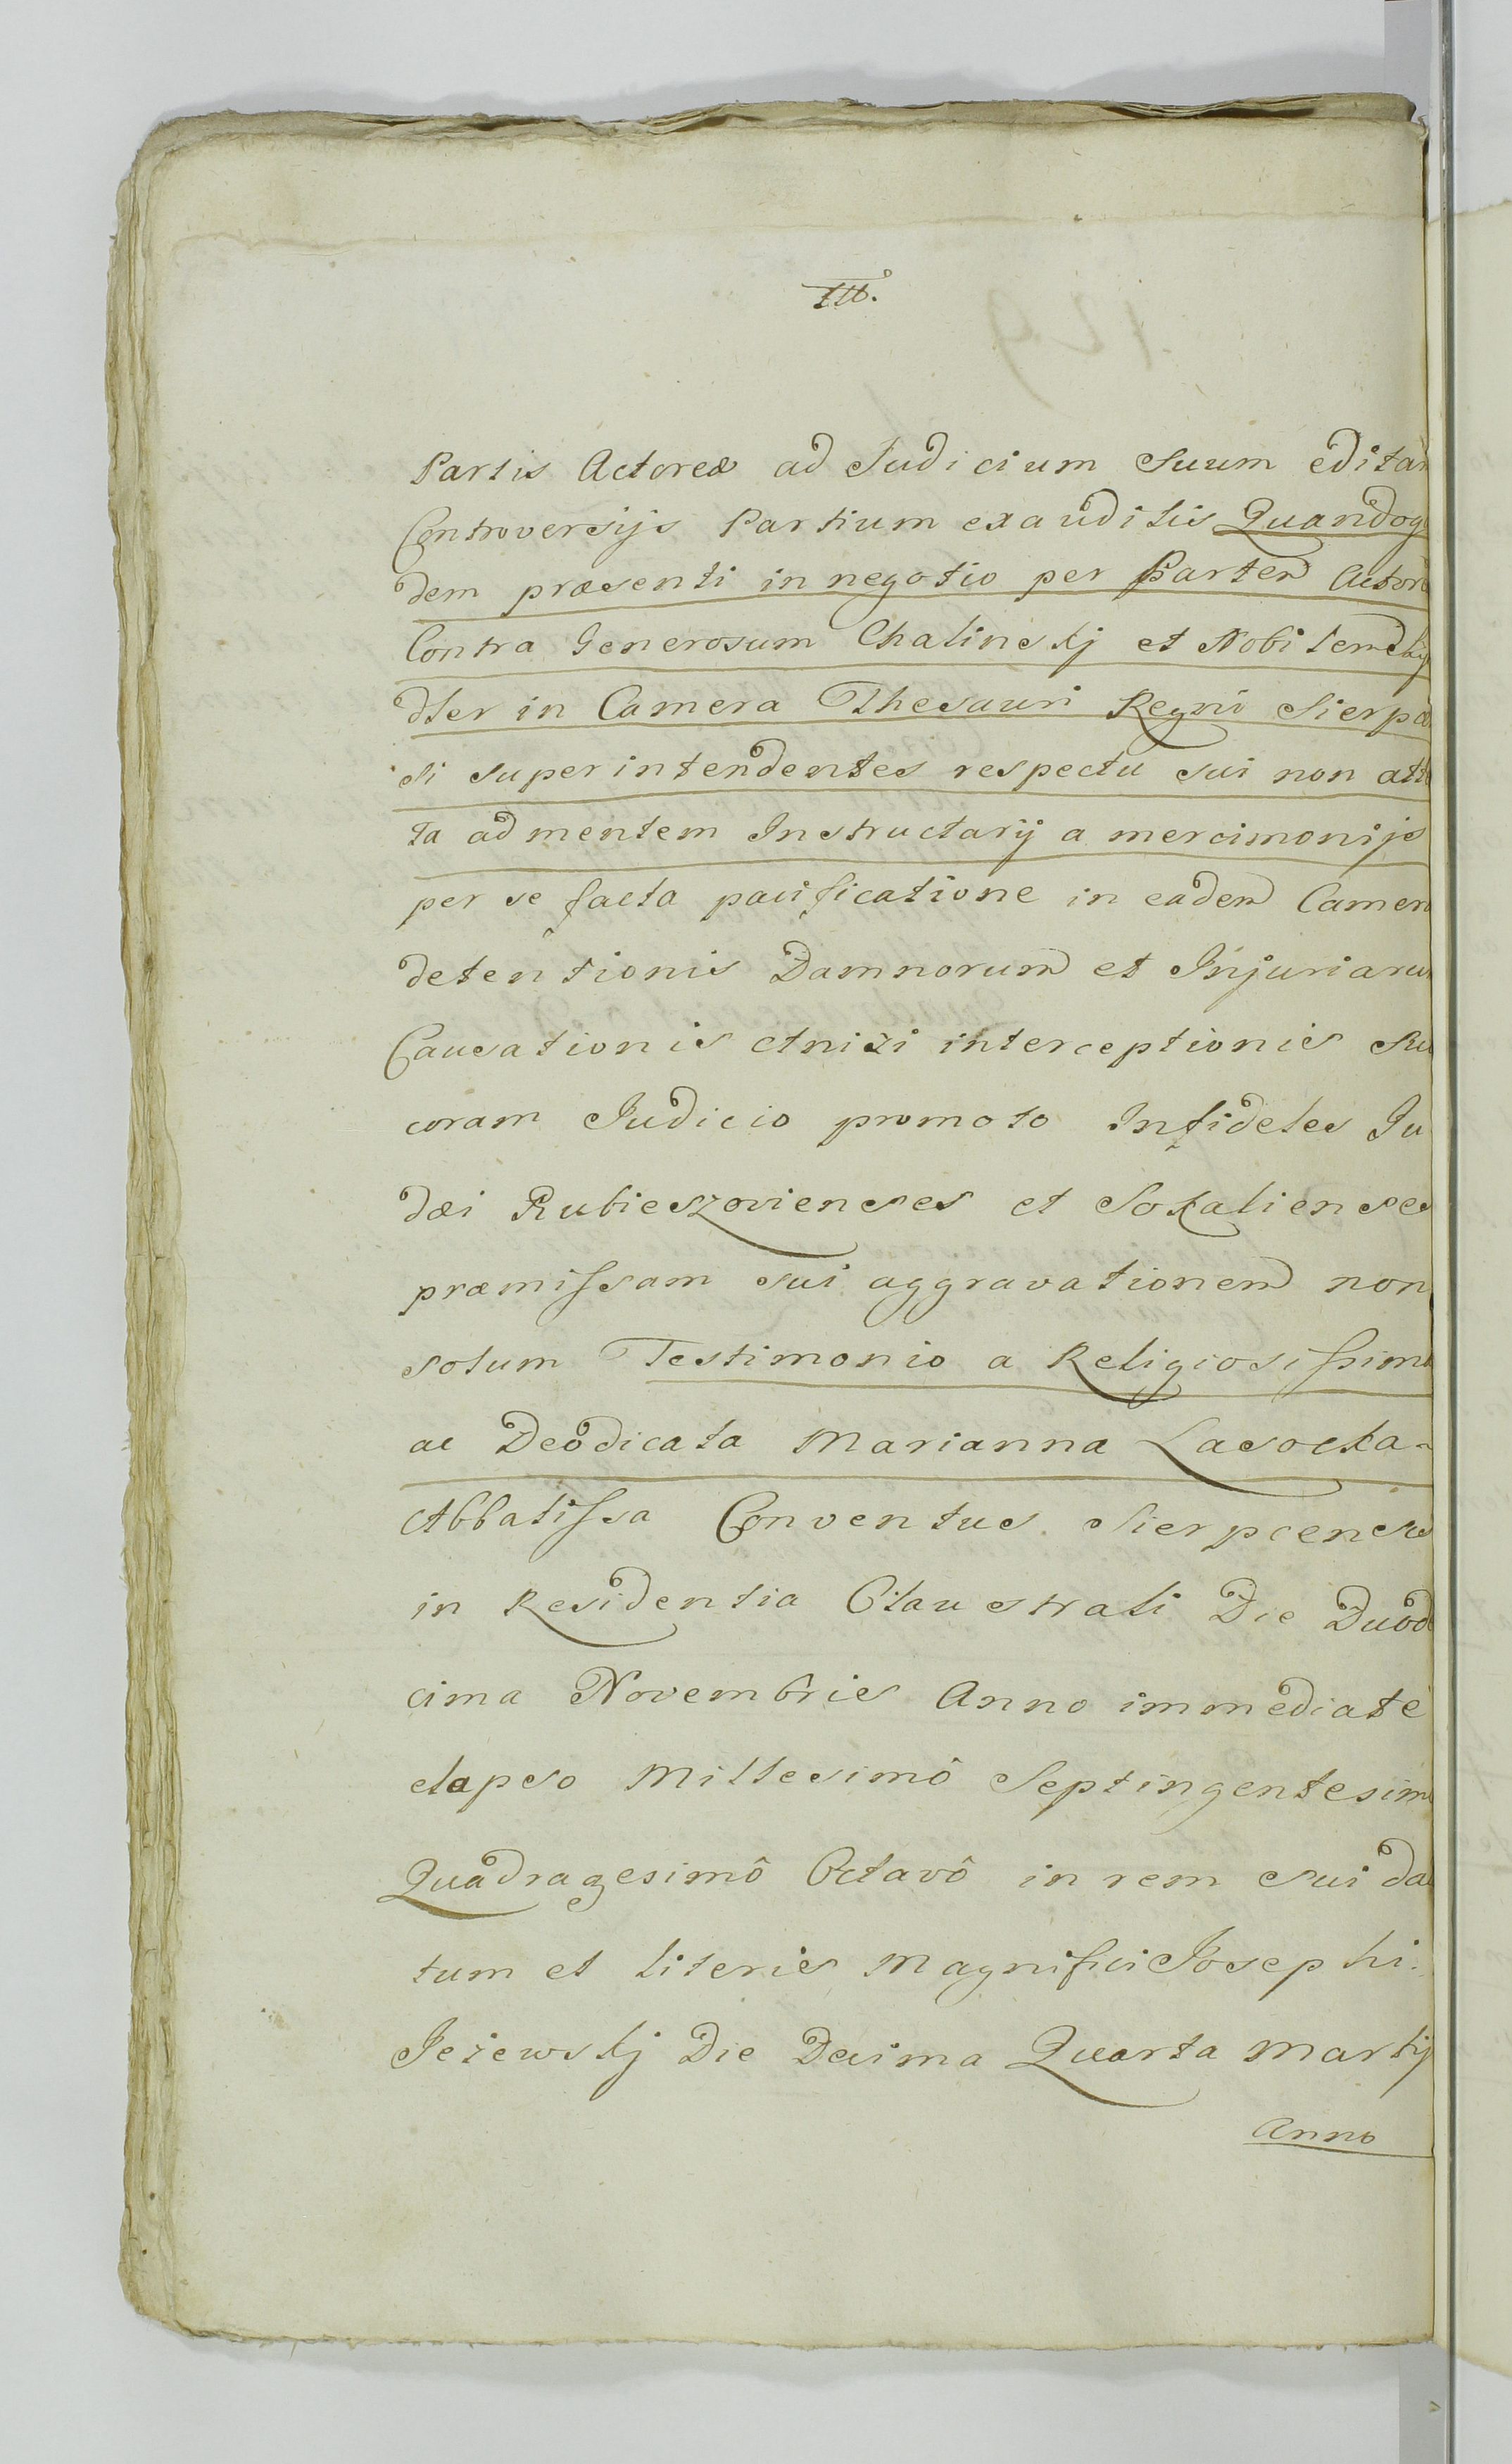 III.
Partis Actoreæ ad Judicium Suum editar
Controversijs Partium exauditis Quandoq
dem præsenti in negotio per Partem Actore
Contra Generosum Chalinskj et Nobilem
dler in Camera Thesauri Regni Sierpce
si superintendentes respectu sui non atte
ta ad mentem Instructarij a mercimonijs
per se facta pacificatione in eadem Camera
detentionis Damnorum et Injuriarum
Causationis Anizi interceptionis su
coram Judicio promoto Infideles Ju
dæi Rubieszovienses et Sokalienses
præmissam sui aggravationem non
solum Testimonio a Religiosissima
ac Deodicata Marianna Lasocka
Abbatissa Conventus Sierpcensis
in Residentia Claustrali Die Duode
cima Novembris Anno immediate
elapso Millesimô Septingentesimo
Quadragesimô Octavô in rem sui da
tum et literis Magnifici Josephi
Jeżewskj Die Decima Quarta Martij
Anno